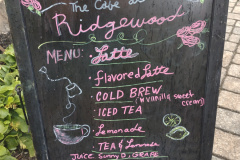 The Cafe at
Ridgewood
MENU: Latte
Flavored Latte
COLD BREW
(w/vanilla sweet
cream)
ICED TEA
Lemonade
TEA & Lemonade
JUICE SUNNY D, GRAPE